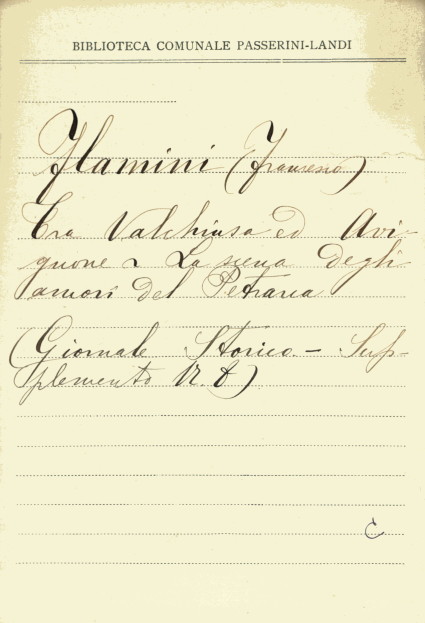 BIBLIOTECA COMUNALE PASSERINI-LANDI
Flamini (Francesco)
Tra Valchiusa ed Avi-
gnone ~ La scena degli
amori del Petrarca
(Giornale Storico - Sup-
plemento N. 8)
C